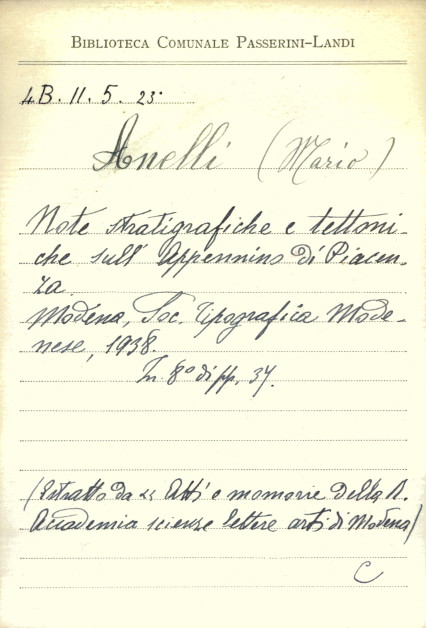 BIBLIOTECA COMUNALE PASSERINI-LANDI
4B. 11. 5. 23.
Anelli (Mario)
Note stratigrafiche e tettoni-
che sull'Appennino di Piacen-
za.
Modena, Soc. Tipografica Mode-
nese, 1938.
In 8° di pp. 37.
(Estratto da << Atti e memorie della R.
Accademia scienze lettere arti di Modena)
C